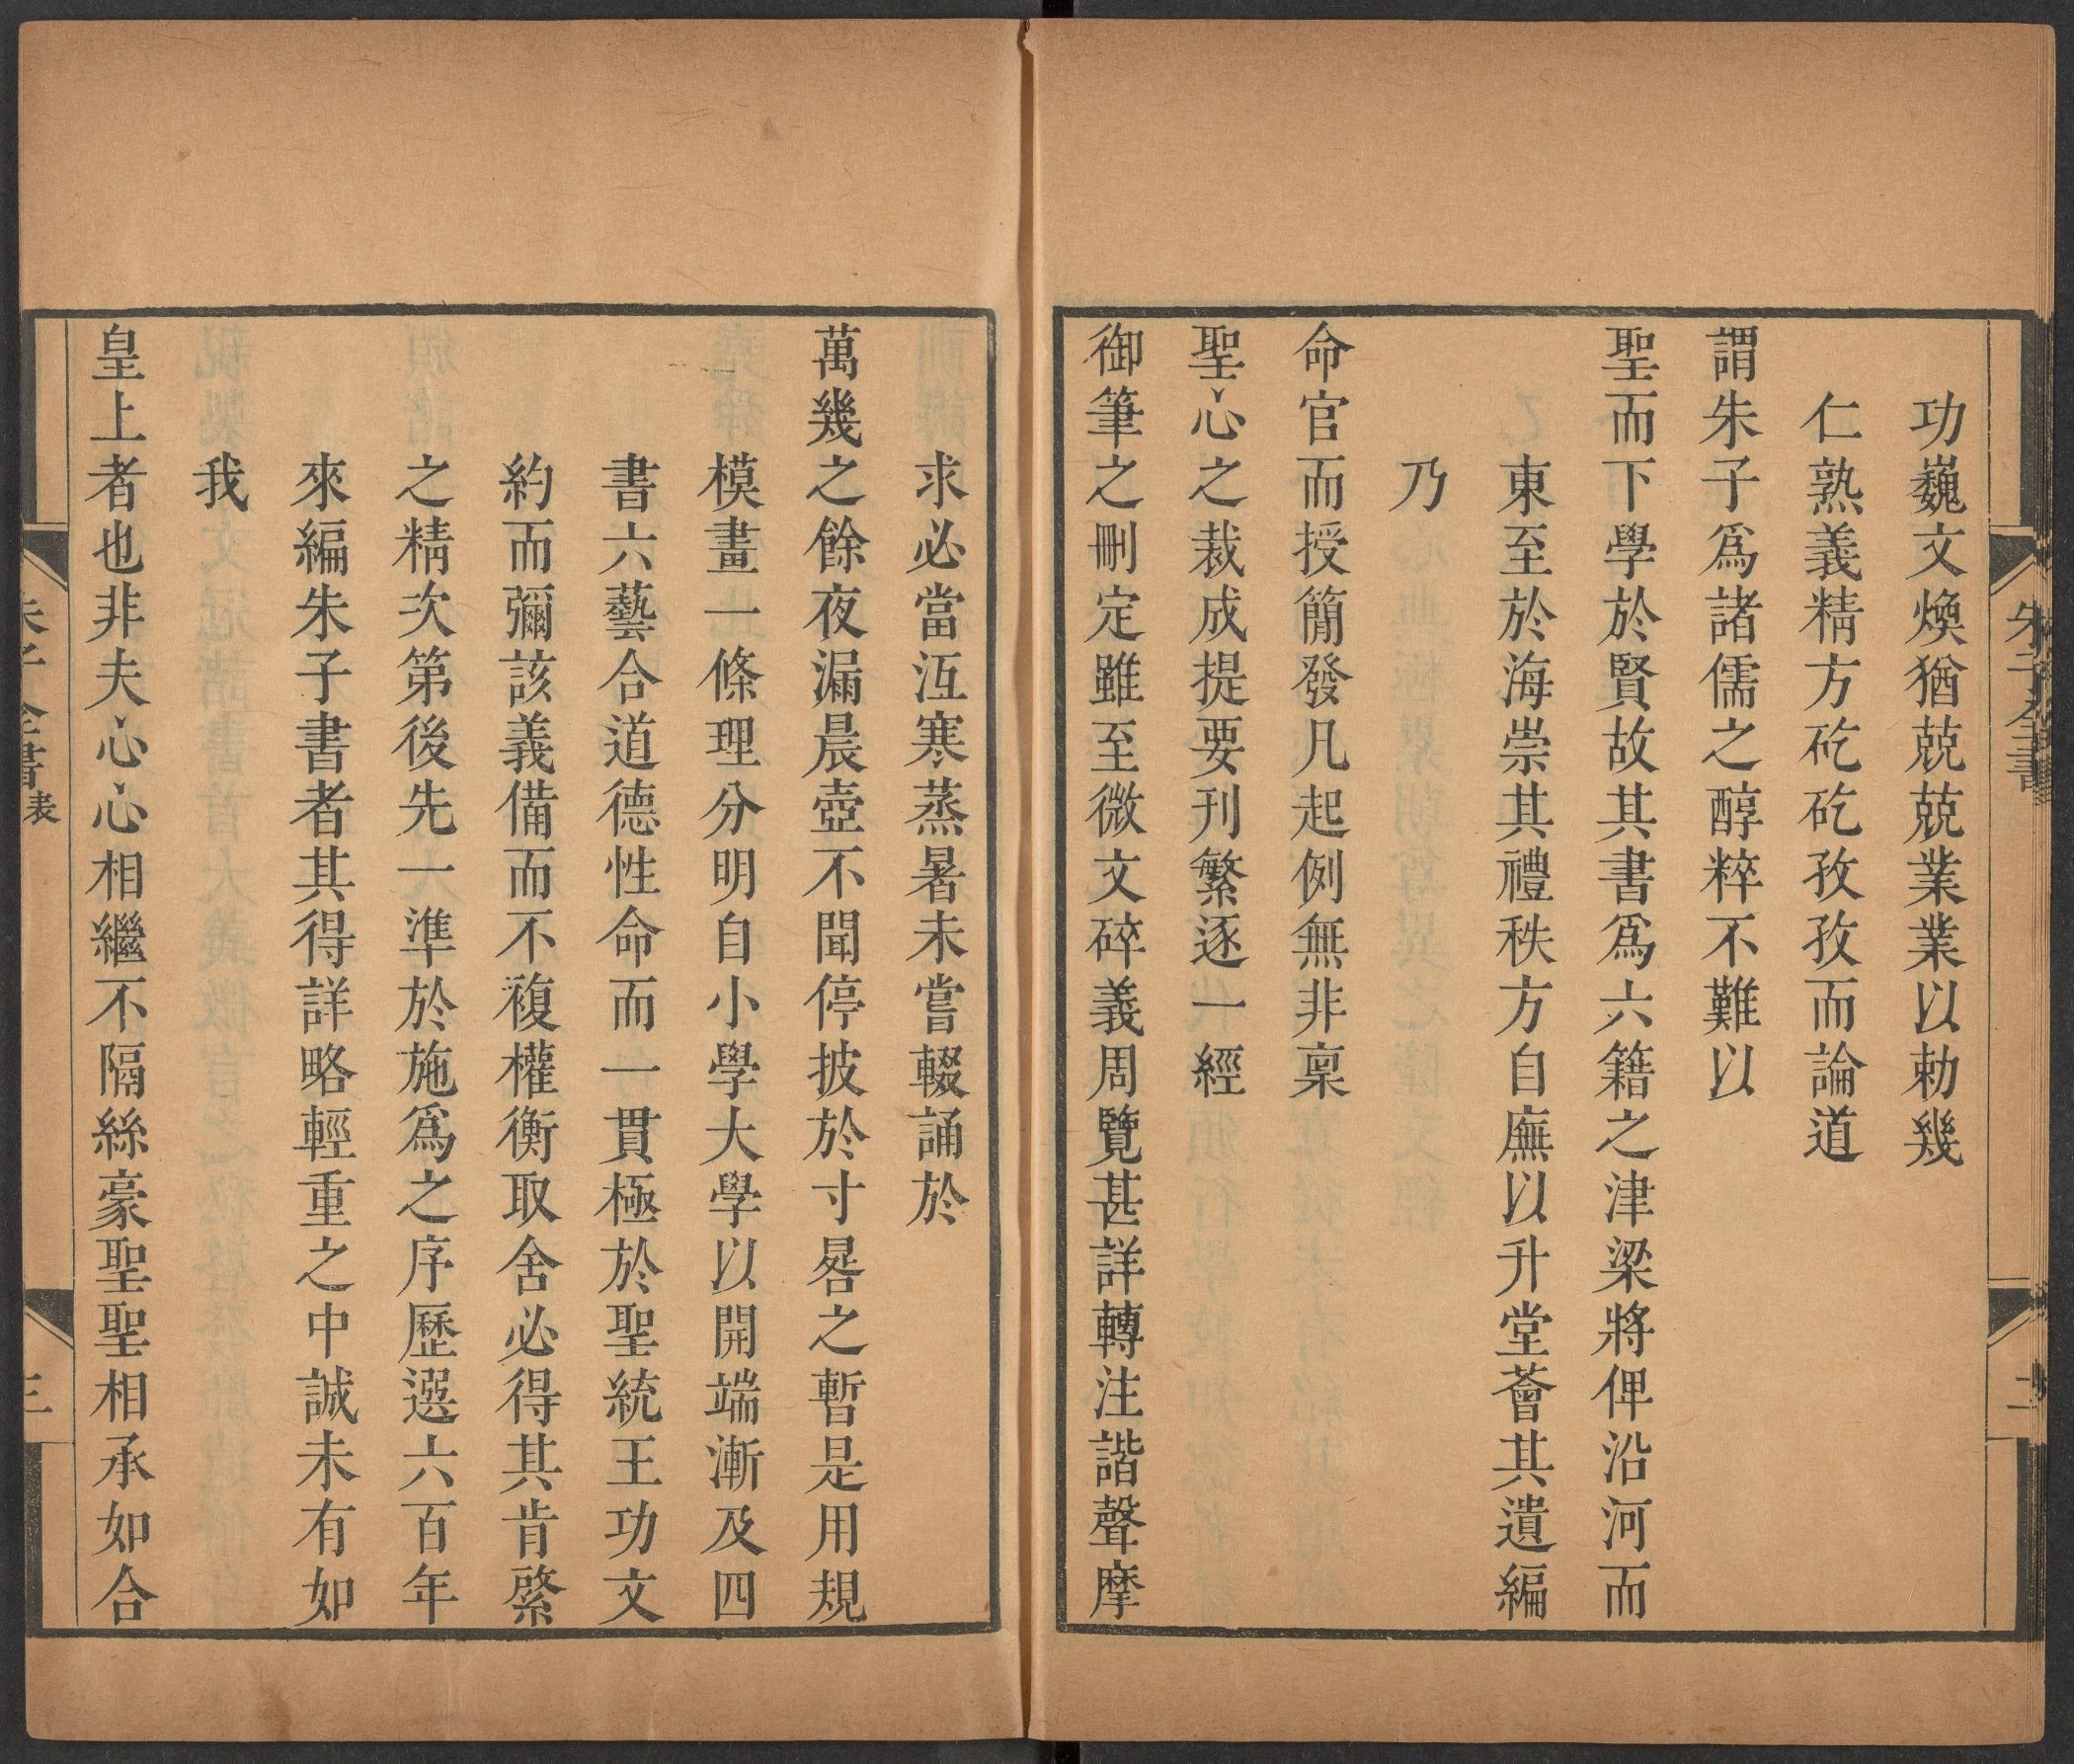 功巍文煥猶兢兢業業以勅幾
仁熟義精方矻矻孜孜而論道
謂朱子爲諸儒之醇粹不難以
聖而下學於賢故其書爲六籍之津梁將俾沿河而
東至於海崇其禮秩方自廡以升堂薈其遺編
乃
命官而授簡發凡起例無非稟
聖心之裁成提要刊繁逐一經
御筆之刪定雖至微文碎義周覽甚詳轉注諧聲摩
求必當沍寒蒸暑未嘗輟誦於
萬幾之餘夜漏晨壺不聞停披於寸晷之暫是用規
模畫一條理分明自小學大學以開端漸及四
書六藝合道德性命而一貫極於聖統王功文
約而彌該義備而不複權衡取舍必得其肯綮
之精次第後先一準於施爲之序歷選六百年
來編朱子書者其得詳略輕重之中誠未有如
我
皇上者也非夫心心相繼不隔絲豪聖聖相承如合
朱子全書
二
朱子全書 表
三